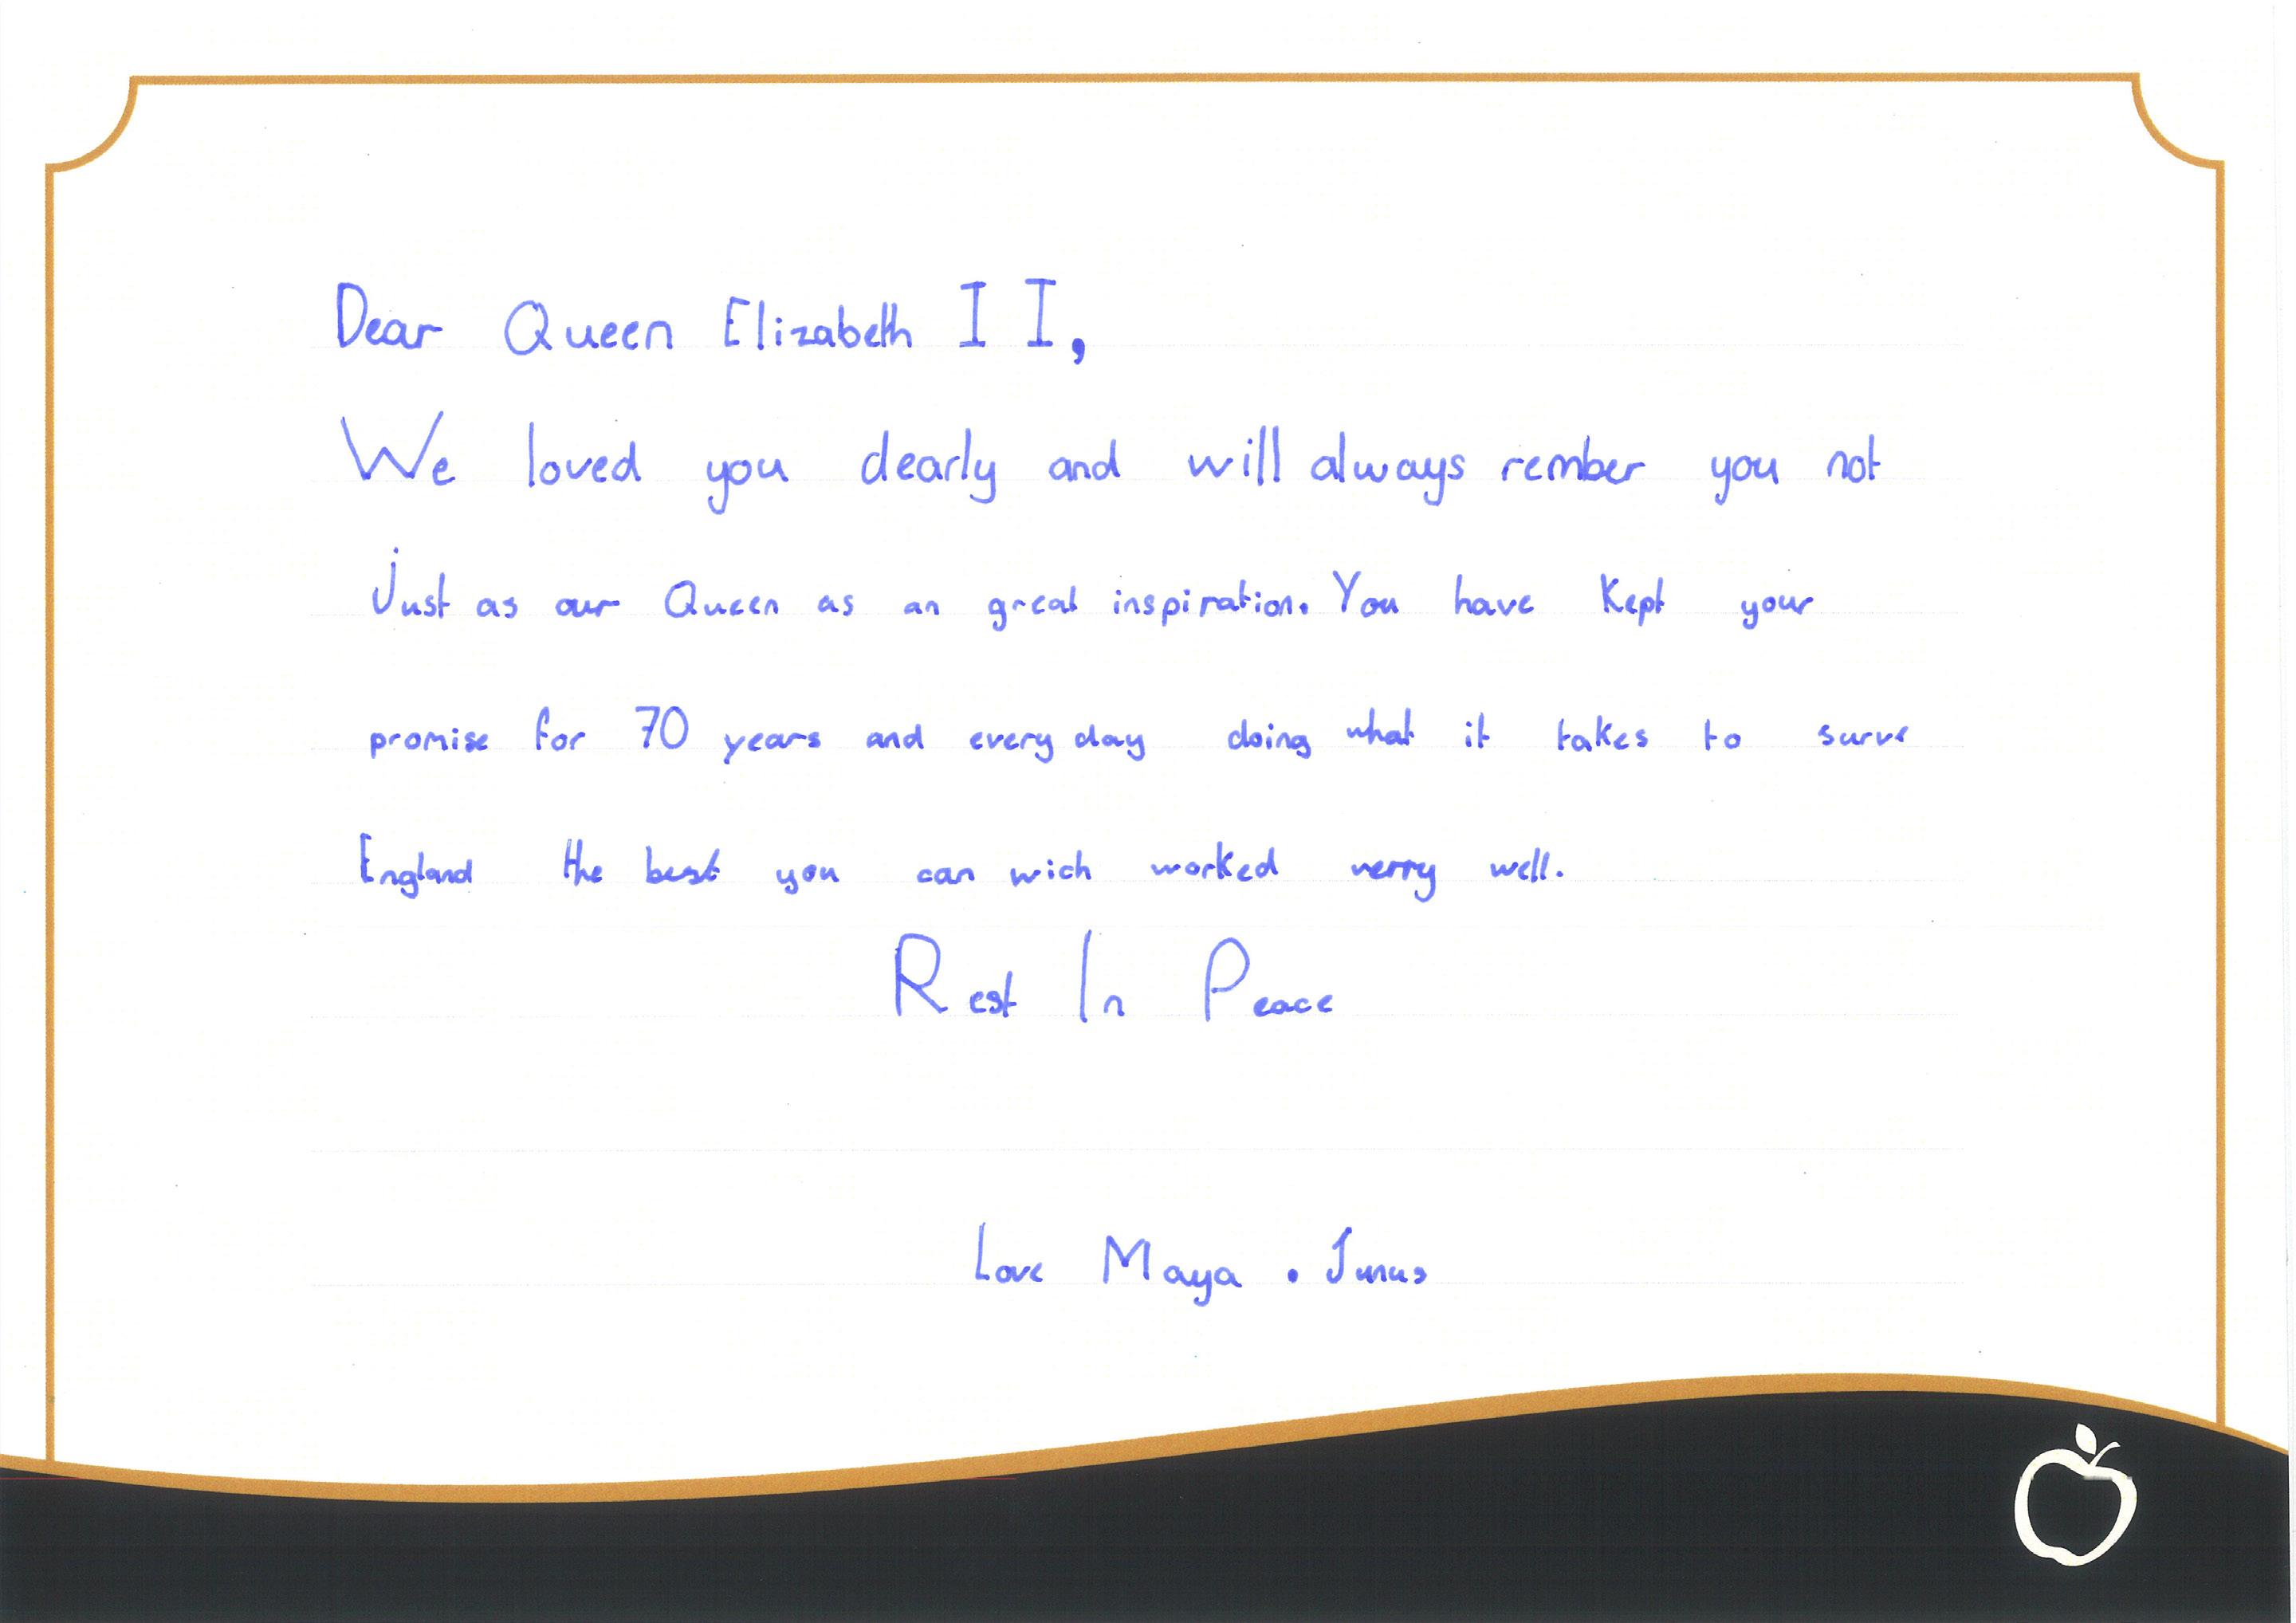 Dear Queen Elizabeth II,
We loved you dearly and will always rember you not
Just as our Queen as an great inspiration. You have Kept your
promise for 70 years and every day doing what it takes to surve
England the best you can wich worked verry well.
Rest In Peace
Love Maya . Junus